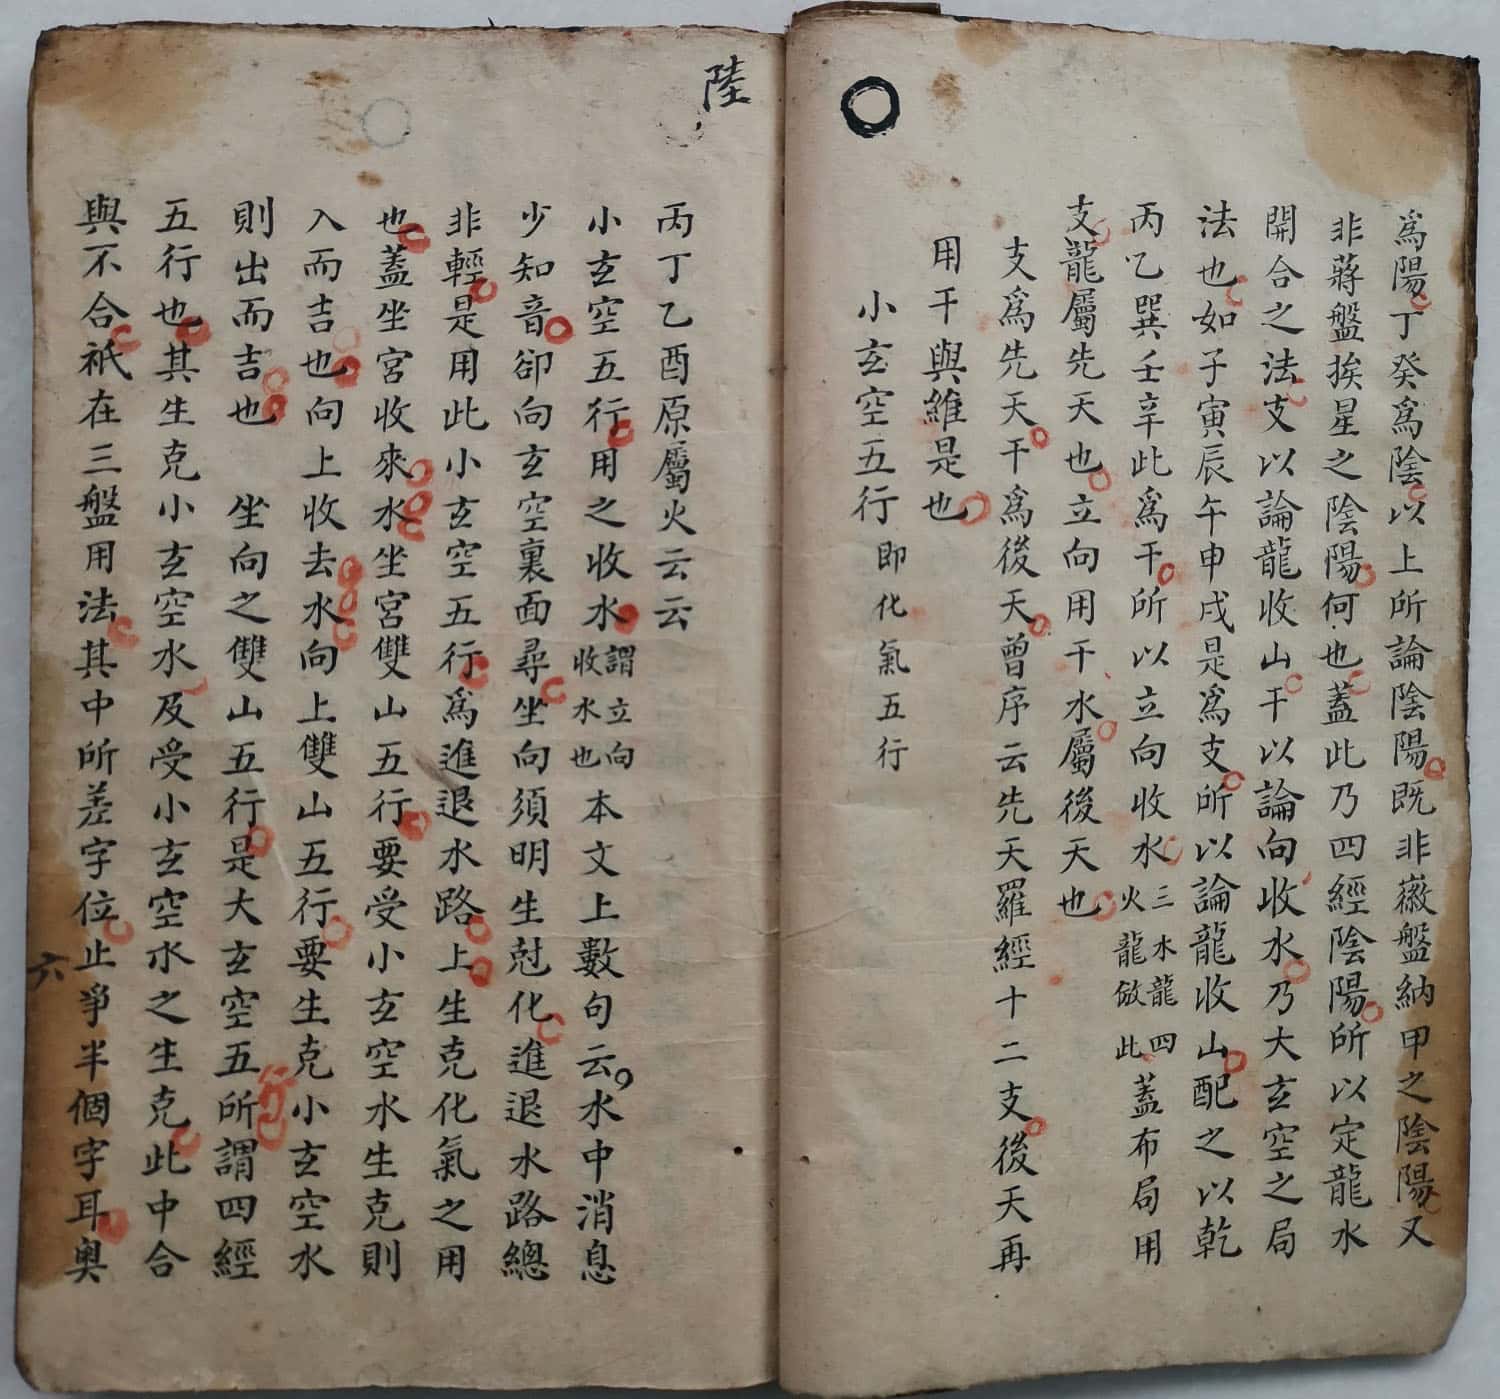 為陽丁癸為陰以上所論陰陽既非㣲盤納甲之陰陽又
非蔣盤挨星之陰陽何也蓋此乃四經陰陽所以定龍水
開合之法支以論龍收山干以論向收水乃大玄空之局
法也如子寅辰午申戌是為支所以論龍收山配之以乾
丙乙巽壬辛此為干所以立向收水三水龍四火龍倣此蓋布局用
支龍屬先天也立向用干水屬後天也
支為先天干為後天曾序云先天羅經十二支後天再
用干與維是也
小玄空五行即化氣五行
陸
丙丁乙酉原屬火云云
小玄空五行用之收水謂立向收水也本文上數句云水中消息
少知音卻向玄空裏面尋坐向須明生尅化進退水路總
非輕是用此小玄空五行為進退水路上生克化氣之用
也蓋坐宮收來水坐宮雙山五行要受小玄空水生克則
入而吉也向上收去水向上雙山五行要生克小玄空水
則出而吉也 坐向之雙山五行是大玄空五所謂四經
五行也其生克小玄空水及受小玄空水之生克此中合
與不合祇在三盤用法其中所差字位止爭半個字耳奧
六
行